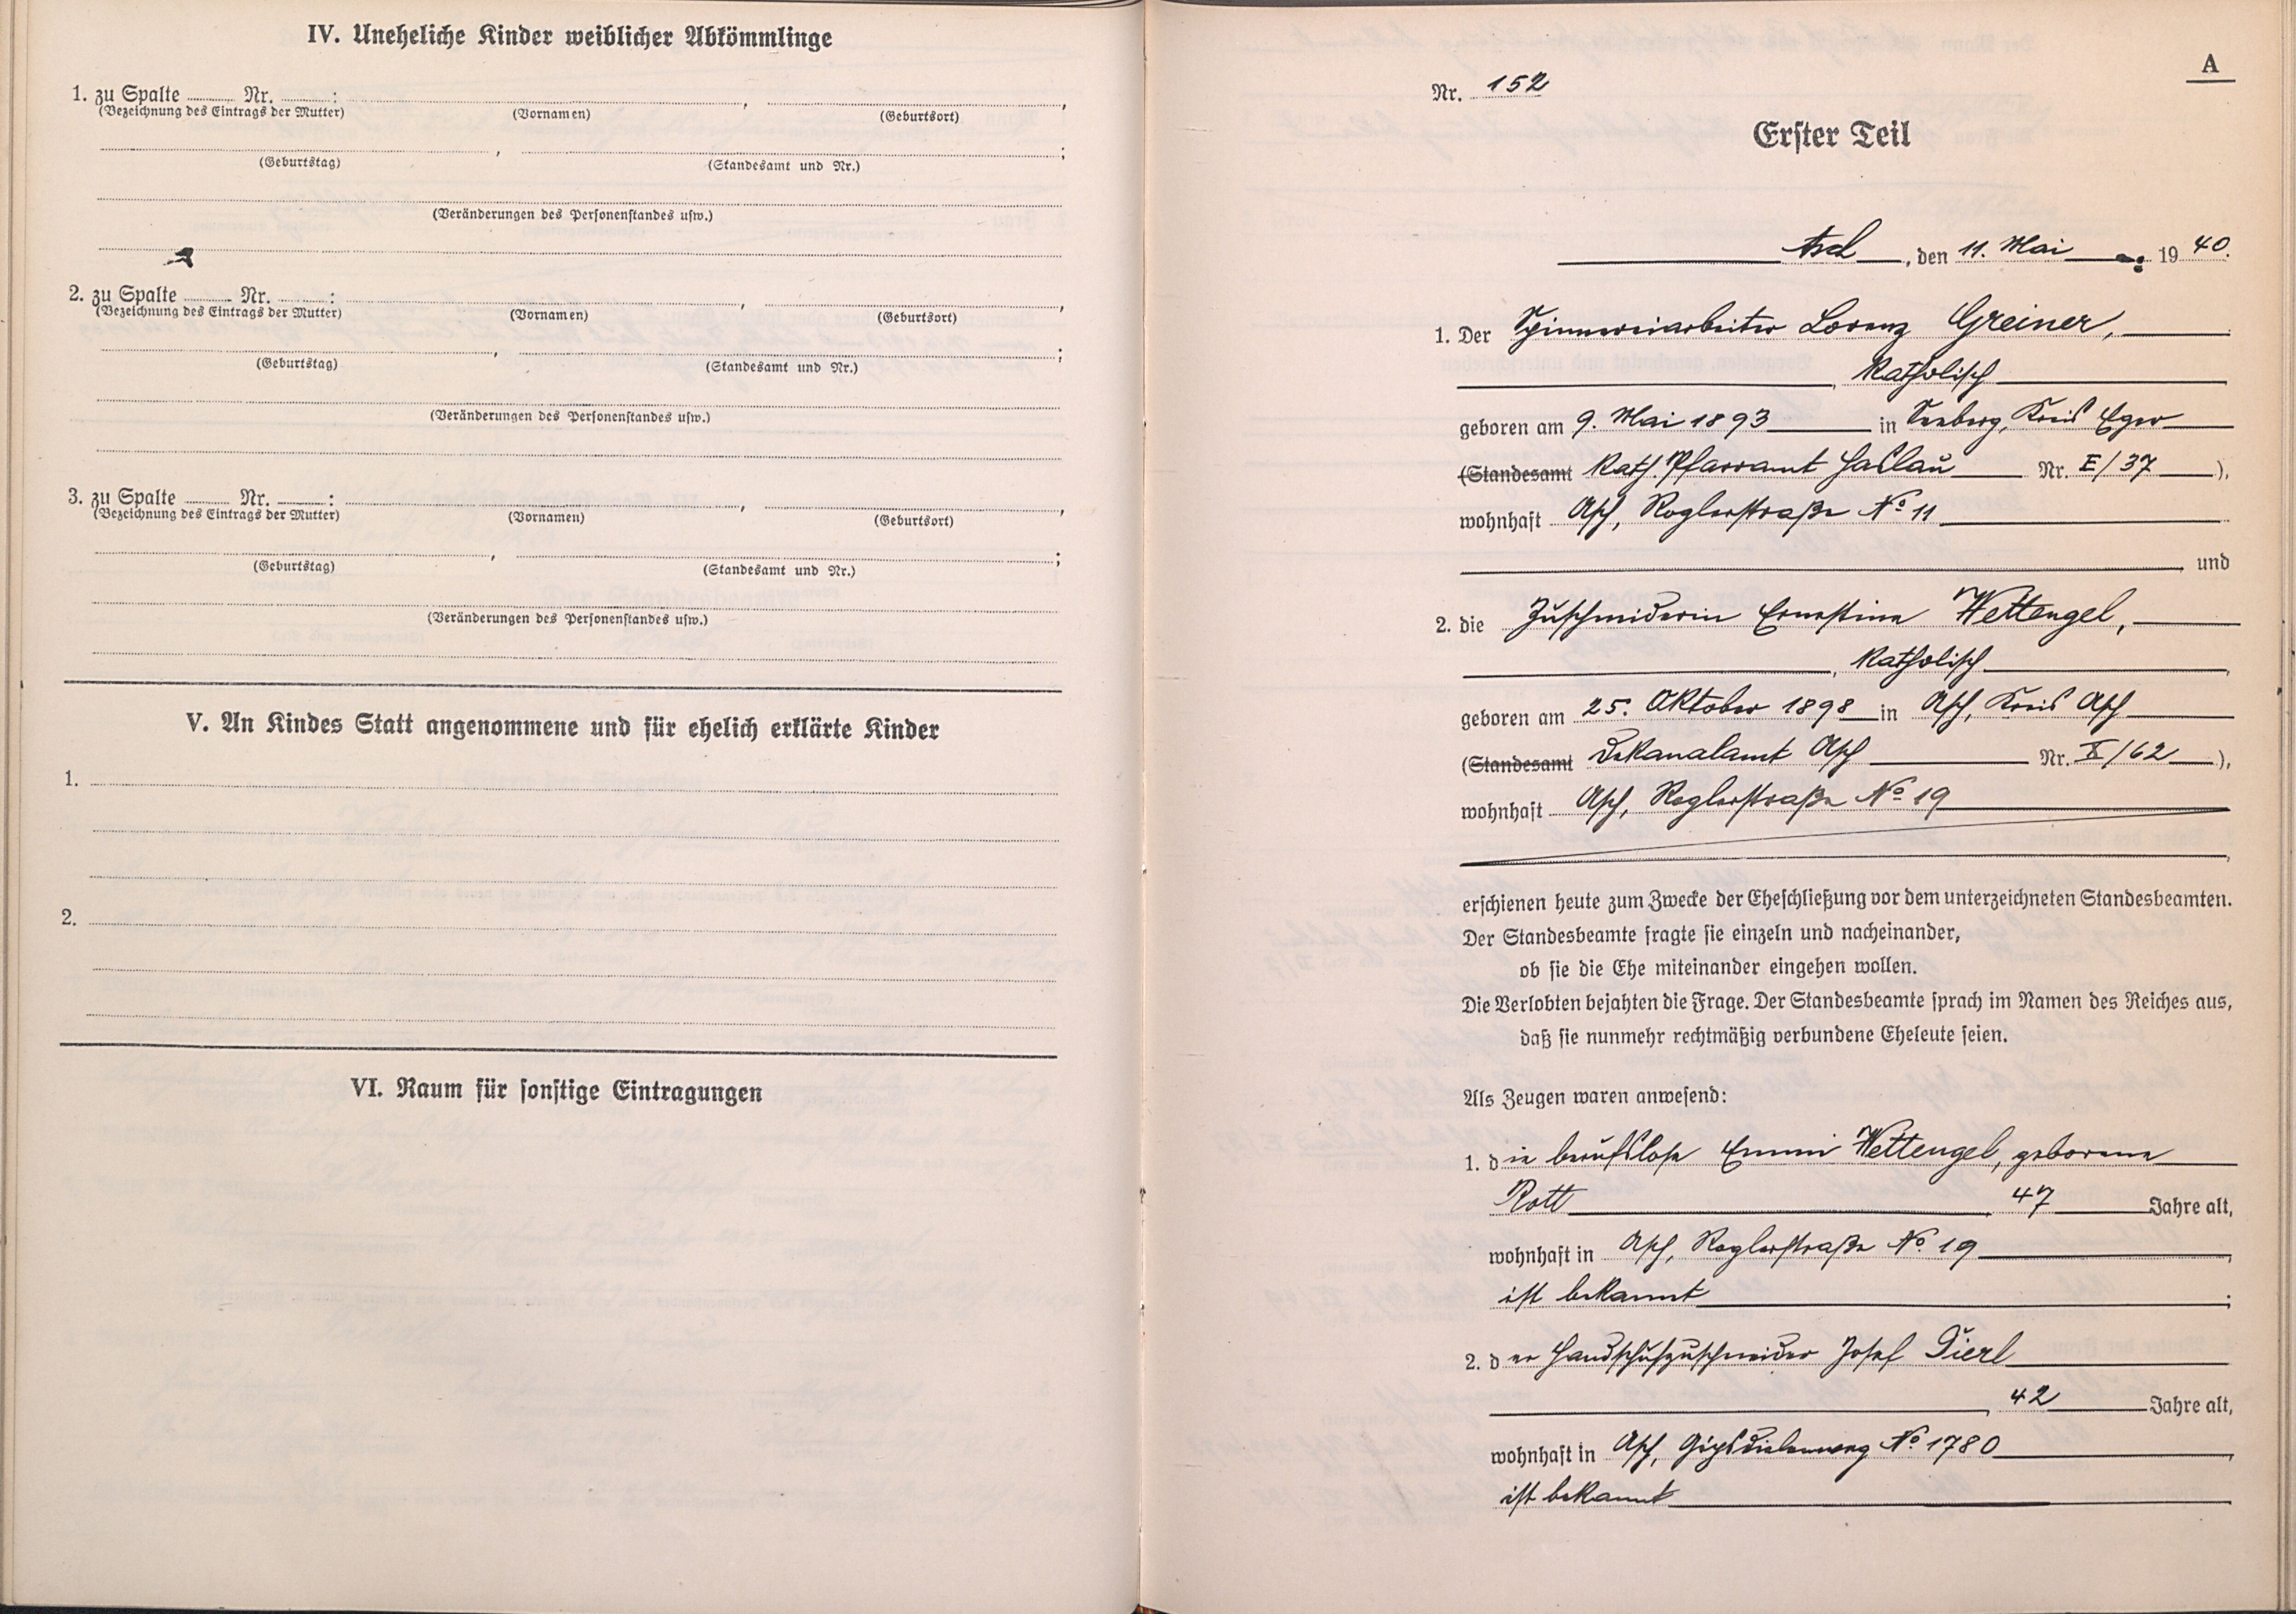 IV. Uneheliche Kinder weiblicher Abkömmlinge
1. zu Spalte ........ Nr. ........: , ,
(Bezeichnung des Eintrags der Mutter) (Vornamen) (Geburtsort)
, ;
(Geburtstag) (Standesamt und Nr.)
(Veränderungen des Personenstandes usw.)
2. zu Spalte ........ Nr. ........: , ,
(Bezeichnung des Eintrags der Mutter) (Vornamen) (Geburtsort)
, ;
(Geburtstag) (Standesamt und Nr.)
(Veränderungen des Personenstandes usw.)
3. zu Spalte ........ Nr. ........: , ,
(Bezeichnung des Eintrags der Mutter) (Vornamen) (Geburtsort)
, ;
(Geburtstag) (Standesamt und Nr.)
(Veränderungen des Personenstandes usw.)
V. An Kindes Statt angenommene und für ehelich erklärte Kinder
1.
2.
VI. Raum für sonstige Eintragungen
A
Nr. 152
Erster Teil
Asch, den 11. Mai 1940.
1. Der Spinnereiarbeiter Lorenz Greiner,
, katholisch
geboren am 9. Mai 1893 in Seeberg, Kreis Eger
(Standesamt Kath. Pfarramt Haslau Nr. E/37),
wohnhaft Asch, Roglerstraße No 11
und
2. die Zuschneiderin Ernestine Wettengel,
, katholisch,
geboren am 25. Oktober 1898 in Asch, Kreis Asch
(Standesamt Dekanalamt Asch Nr. X/62),
wohnhaft Asch, Roglerstraße No 19
,
erschienen heute zum Zwecke der Eheschließung vor dem unterzeichneten Standesbeamten.
Der Standesbeamte fragte sie einzeln und nacheinander,
ob sie die Ehe miteinander eingehen wollen.
Die Verlobten bejahten die Frage. Der Standesbeamte sprach im Namen des Reiches aus,
daß sie nunmehr rechtmäßig verbundene Eheleute seien.
Als Zeugen waren anwesend:
1. die berufslose Emmi Wettengel, geborene
Rott, 47 Jahre alt,
wohnhaft in Asch, Roglerstraße No 19,
ist bekannt;
2. der Handschuhzuschneider Josef Dierl
, 42 Jahre alt,
wohnhaft in Asch, Gipsdielenweg No 1780,
ist bekannt